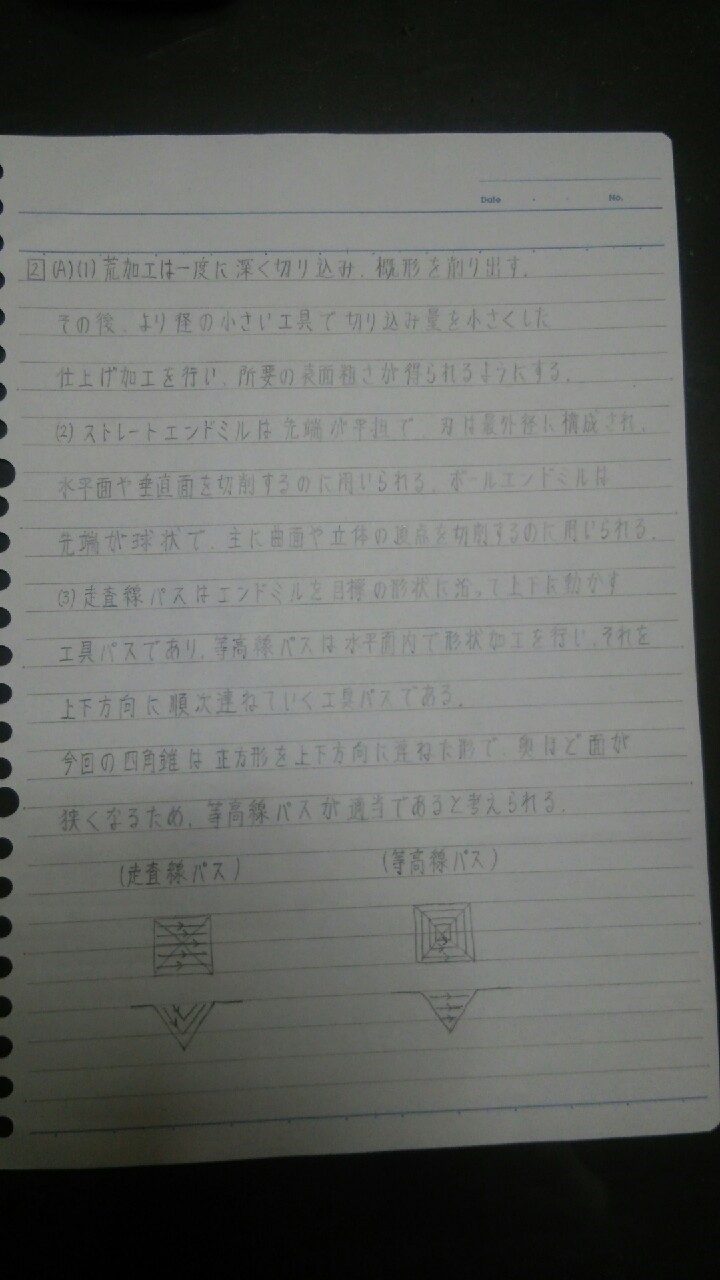 Date ・ ・ No.
2 (A)(1) 荒加工は一度に深く切り込み、概形を削り出す。
その後、より径の小さい工具で切り込み量を小さくした
仕上げ加工を行い、所要の表面粗さが得られるようにする。
(2) ストレートエンドミルは先端が平坦で、刃は最外径に構成され、
水平面や垂直面を切削するのに用いられる。ボールエンドミルは
先端が球状で、主に曲面や立体の頂点を切削するのに用いられる。
(3) 走査線パスはエンドミルを目標の形状に沿って上下に動かす
工具パスであり、等高線パスは水平面内で形状加工を行い、それを
上下方向に順次連ねていく工具パスである。
今回の四角錐は正方形を上下方向に連ねた形で、奥ほど面が
狭くなるため、等高線パスが適当であると考えられる。
(走査線パス) (等高線パス)